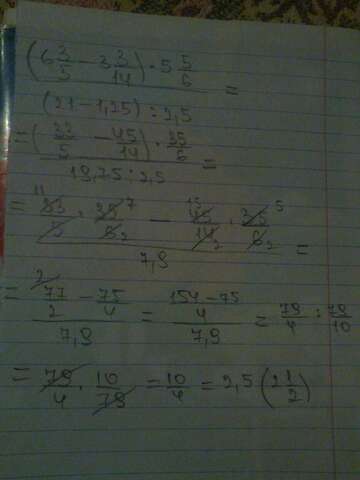 (6 3/5 - 3 3/14) · 5 5/6
(21 - 1,25) : 2,5 =
= (33/5 - 45/14) · 35/6
19,75 : 2,5 =
= 11 33/5 · 35/6 7 2 - 15 45/14 2 · 35/6 5 2
7,9 =
= 2 77/2 - 75/4 = 154 - 75/4 = 79/4 : 79/10
7,9 7,9
= 79/4 · 10/79 = 10/4 = 2,5 (2 1/2)